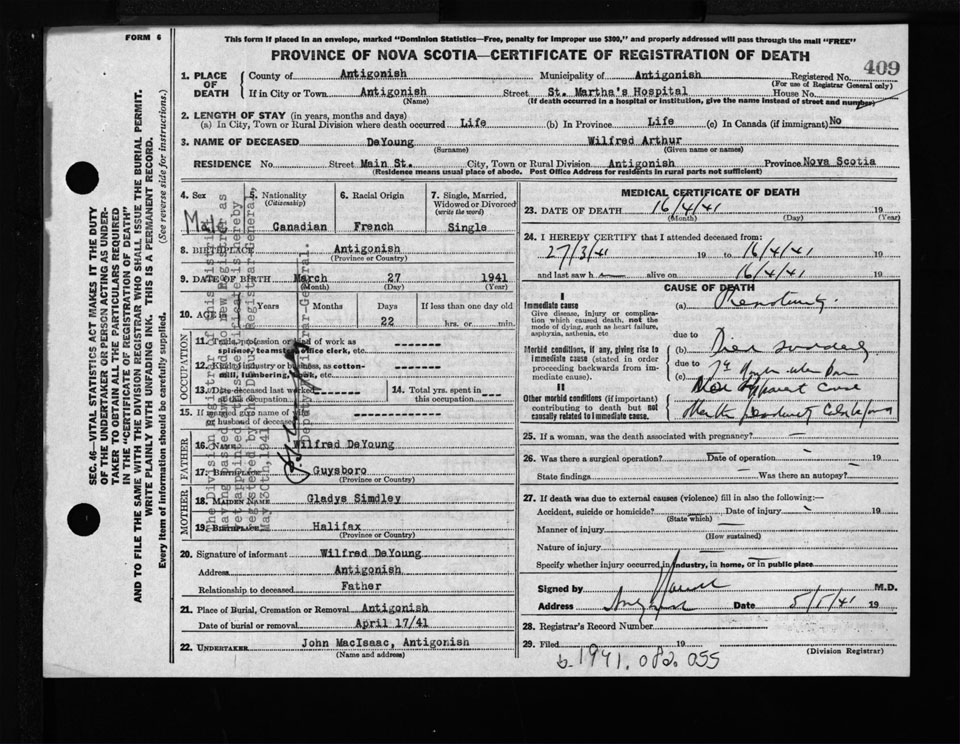 FORM 6
This form if placed in an envelope, marked "Dominion Statistics—Free, penalty for improper use $300," and properly addressed will pass through the mail "FREE"
PROVINCE OF NOVA SCOTIA—CERTIFICATE OF REGISTRATION OF DEATH
409
1. PLACE OF DEATH County of Antigonish Municipality of Antigonish Registered No.
(For use of Registrar General only)
If in City or Town Antigonish Street St. Martha's Hospital House No.
(Name) (If death occurred in a hospital or institution, give the name instead of street and number)
2. LENGTH OF STAY (in years, months and days)
(a) In City, Town or Rural Division where death occurred Life (b) In Province Life (c) In Canada (if immigrant) No
3. NAME OF DECEASED DeYoung Wilfred Arthur
(Surname) (Given name or names)
RESIDENCE No. Street Main St. City, Town or Rural Division Antigonish Province Nova Scotia
(Residence means usual place of abode. Post Office Address for residents in rural parts not sufficient)
4. Sex 5. Nationality (Citizenship) 6. Racial Origin 7. Single, Married, Widowed or Divorced (write the word)
Male Canadian French Single
8. BIRTHPLACE Antigonish
(Province or Country)
9. DATE OF BIRTH March 27 1941
(Month) (Day) (Year)
10. AGE Years Months Days If less than one day old
22 hrs. or min.
OCCUPATION
11. Trade, profession or kind of work as spinner, teamster, office clerk, etc. ------
12. Kind of industry or business, as cotton-mill, lumbering, bank, etc. ------
13. Date deceased last worked at this occupation 14. Total yrs. spent in this occupation ----
15. If married give name of wife or husband of deceased ------
FATHER
16. Name Wilfred DeYoung
17. Birthplace Guysboro
(Province or Country)
MOTHER
18. Maiden Name Gladys Simdley
19. Birthplace Halifax
(Province or Country)
20. Signature of informant Wilfred DeYoung
Address Antigonish
Relationship to deceased Father
21. Place of Burial, Cremation or Removal Antigonish
Date of burial or removal April 17/41
22. UNDERTAKER John MacIsaac, Antigonish
(Name and address)
MEDICAL CERTIFICATE OF DEATH
23. DATE OF DEATH 16/4/41 19
(Month) (Day) (Year)
24. I HEREBY CERTIFY that I attended deceased from:
27/3/41 19 to 16/4/41 19
and last saw h alive on 16/4/41 19
CAUSE OF DEATH
I
Immediate cause (a)
Give disease, injury or complication which caused death, not the mode of dying, such as heart failure, asphyxia, asthenia, etc
due to
Morbid conditions, if any, giving rise to immediate cause (stated in order proceeding backwards from immediate cause). (b) Died suddenly
due to
(c)
II
Other morbid conditions (if important) contributing to death but not causally related to immediate cause.
25. If a woman, was the death associated with pregnancy?
26. Was there a surgical operation? Date of operation 19
State findings Was there an autopsy?
27. If death was due to external causes (violence) fill in also the following:—
Accident, suicide or homicide? Date of injury 19
(State which)
Manner of injury
(How sustained)
Nature of injury
Specify whether injury occurred in industry, in home, or in public place
Signed by M.D.
Address Antigonish Date 5/5/41 19
28. Registrar's Record Number
29. Filed 19
(Division Registrar)
b-1941.082.055
SEC. 46—VITAL STATISTICS ACT MAKES IT THE DUTY
OF THE UNDERTAKER OR PERSON ACTING AS UNDER-
TAKER TO OBTAIN ALL THE PARTICULARS REQUIRED
IN THE "CERTIFICATE OF REGISTRATION OF DEATH"
AND TO FILE THE SAME WITH THE DIVISION REGISTRAR WHO SHALL ISSUE THE BURIAL PERMIT.
WRITE PLAINLY WITH UNFADING INK. THIS IS A PERMANENT RECORD.
Every item of information should be carefully supplied. (See reverse side for instructions.)
May 30th, 1941
Deputy Registrar-General.